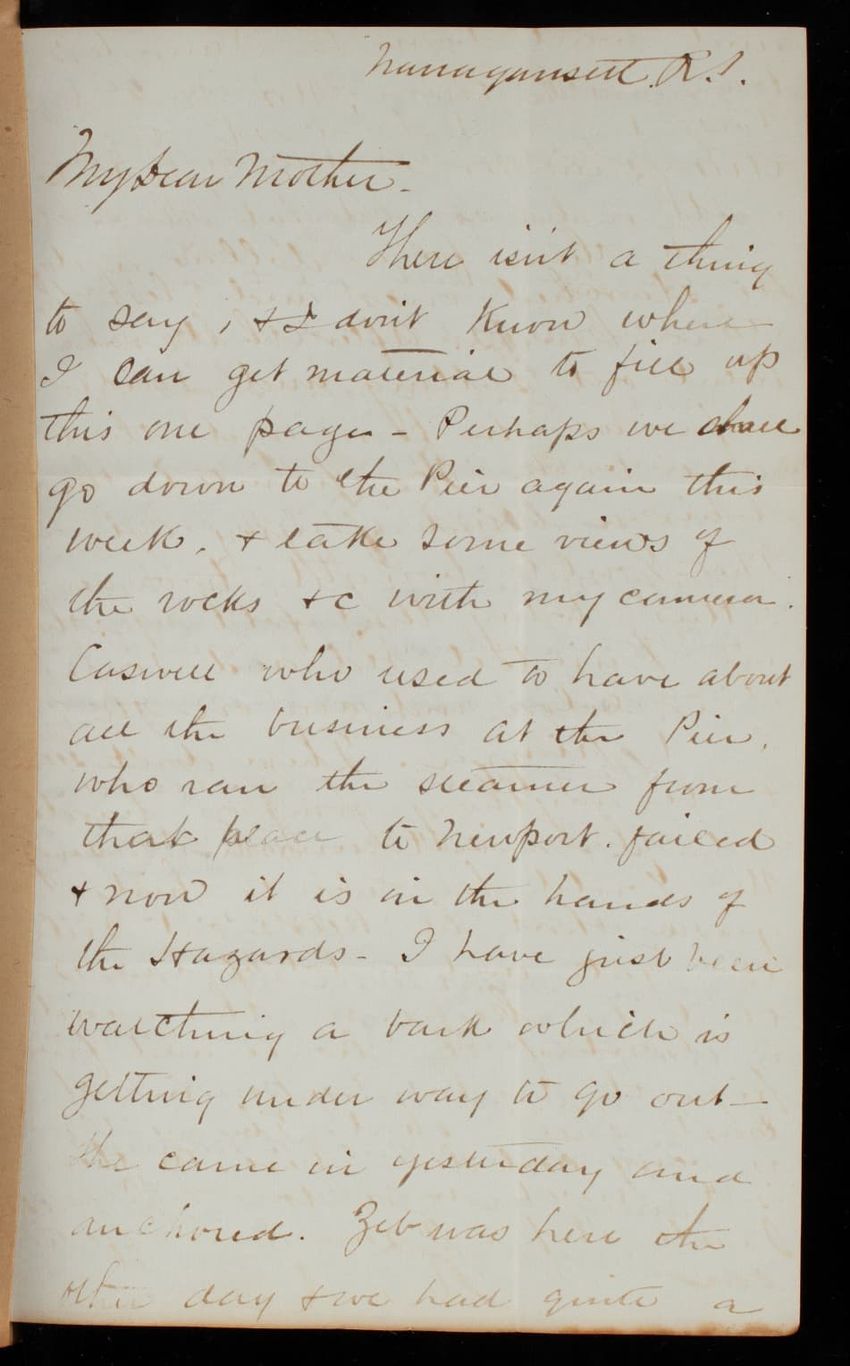 Narragansett. R.I.
My Dear Mother -
There isn't a thing
to say, & I don't know where
I can get material to fill up
this one page - Perhaps we shall
go down to the Pier again this
week, & take some views of
the rocks &c with my camera.
Caswell who used to have about
all the business at the Pier,
who ran the steamer from
that place to Newport. failed
& now it is in the hands of
the Hazards - I have just been
watching a bark which is
getting under way to go out -
She came in yesterday and
anchored. Zeb was here the
other day & we had quite a